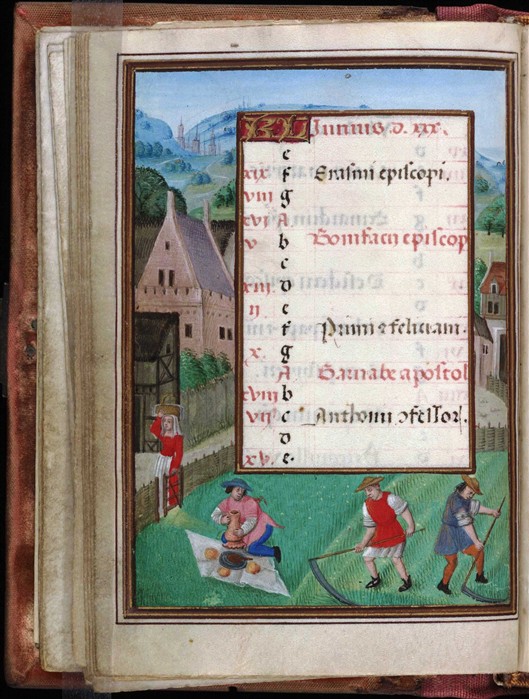 KL Junius .d. xxx.
e
xix f Erasmi episcopi.
viii g
xvi A
v b Bonifacii episcop
c
xiii d
ii e
f Primi et feliciani.
x. g
A Barnabe apostol
xviii b
vii c Anthonii ꝯfessor.
d
xv. e.